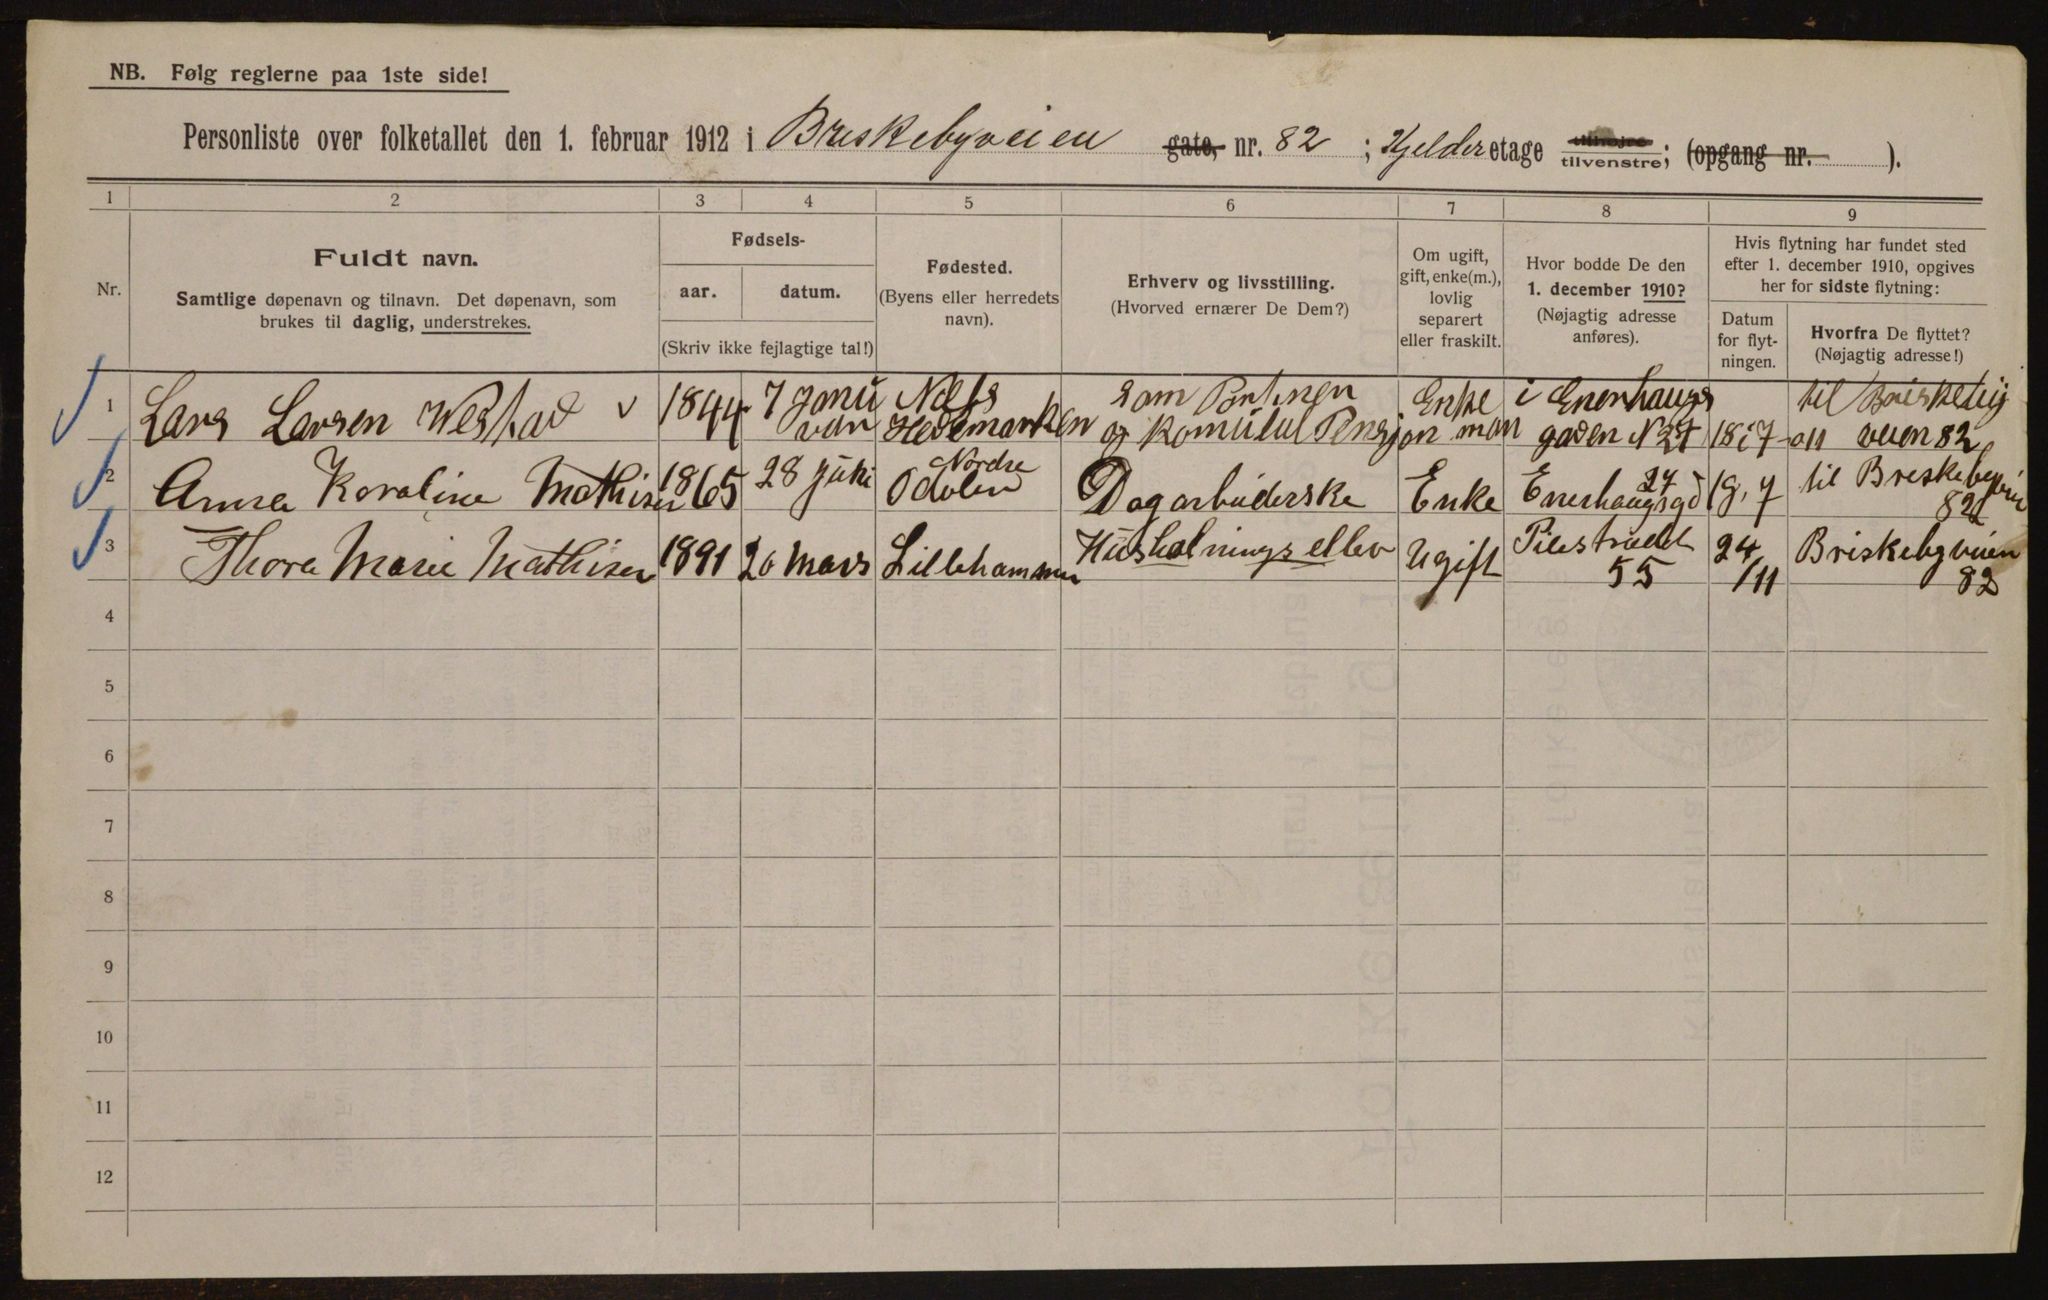 NB. Følg reglerne paa 1ste side!
Personliste over folketallet den 1. februar 1912 i Briskebyveien gate, nr. 82 ; Kjelder etage tilhøjre tilvenstre; (opgang nr. ).
1 2 3 4 5 6 7 8 9
Nr.
Fuldt navn.
Samtlige døpenavn og tilnavn. Det døpenavn, som
brukes til daglig, understrekes.
Fødsels-
aar. datum.
(Skriv ikke fejlagtige tal!)
Fødested.
(Byens eller herredets
navn).
Erhverv og livsstilling.
(Hvorved ernærer De Dem?)
Om ugift,
gift, enke(m.),
lovlig
separert
eller fraskilt.
Hvor bodde De den
1. december 1910?
(Nøjagtig adresse
anføres).
Hvis flytning har fundet sted
efter 1. december 1910, opgives
her for sidste flytning:
Datum
for flyt-
ningen.
Hvorfra De flyttet?
(Nøjagtig adresse!)
1 Lars Larsen Westad v 1844 7 Janu
var Næs
Hedemarken som
og Pension Enke
man i Enerhaugs
gaden N 27 18 i 7 - 011 til Briskeby
veien 82
2 Anna Karoline Mathisen 1865 28 juni Nordre
Odalen Dagarbuderske Enke 27
Enerhaugsgd 19, 7 til Breskebyvein
82
3 Thora Marie Mathisen 1891 20 Mars Lillehammer Husholningsellev Ugift Pilestrædet
55 24
/11 Briskebyveien
82
4
5
6
7
8
9
10
11
12